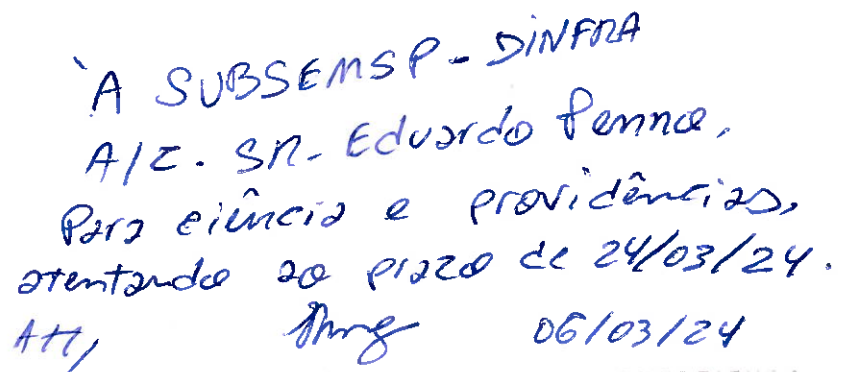 À SUBSEMSP - DINFRA
A/C. SR. Eduardo Penna,
Para ciência e providências,
atentando ao prazo de 24/03/24.
Att, 06/03/24